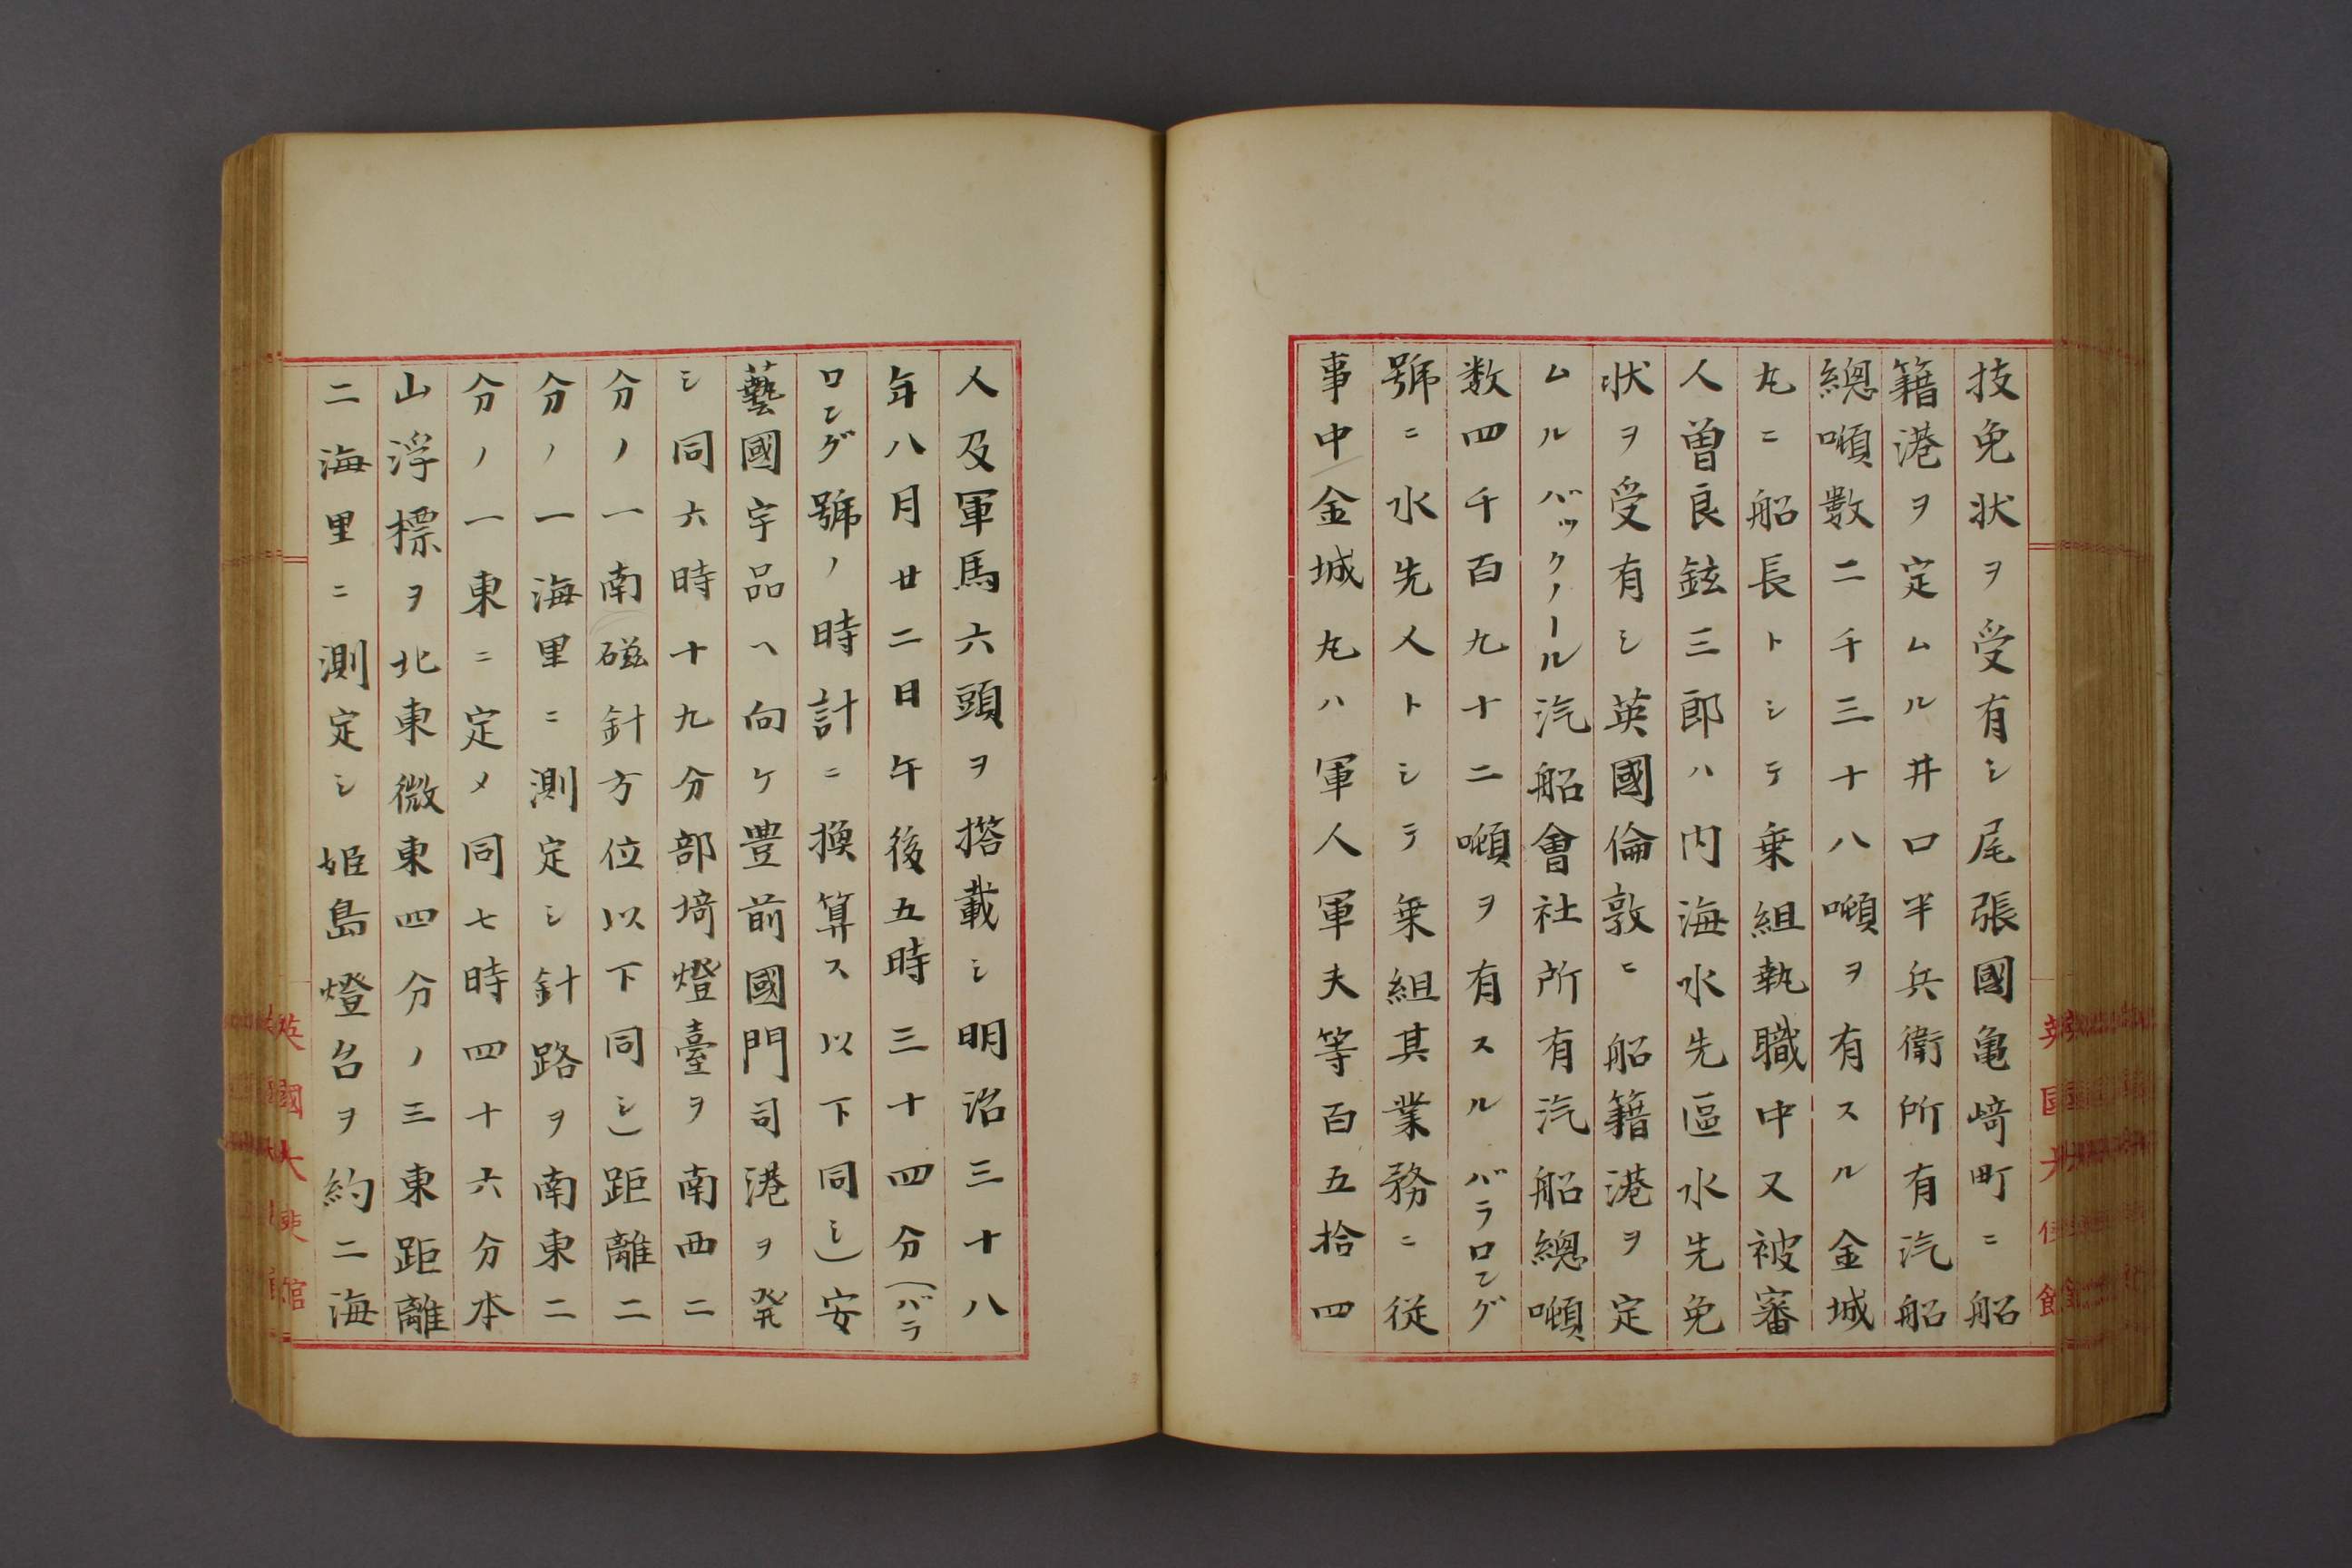 技免状ヲ受有シ尾張國亀﨑町ニ船
籍港ヲ定ムル井口半兵衛所有汽船
總噸數二千三十八噸ヲ有スル金城
丸ニ船長トシテ乗組執職中又被審
人曽良鉉三郎ハ内海水先區水先免
状ヲ受有シ英國倫敦ニ船籍港ヲ定
ムルバックノール汽船會社所有汽船總噸
数四千百九十二噸ヲ有スルバラロング
號ニ水先人トシテ乗組其業務ニ従
事中金城丸ハ軍人軍夫等百五拾四
人及軍馬六頭ヲ搭載シ明治三十八
年八月廿二日午後五時三十四分(バラ
ロング號ノ時計ニ換算ス以下同シ)安
藝國宇品ヘ向ケ豊前國門司港ヲ発
シ同六時十九分部埼燈臺ヲ南西二
分ノ一南磁針方位以下同シ)距離二
分ノ一海里ニ測定シ針路ヲ南東二
分ノ一東ニ定メ同七時四十六分本
山浮標ヲ北東微東四分ノ三東距離
二海里ニ測定シ姫島燈台ヲ約二海
英國大使館